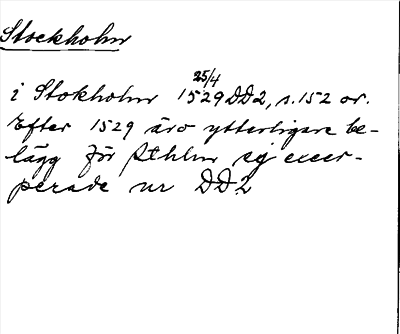 Stockholm
25/4
i Stokholm 1529 DD2, s. 152 or.
Efter 1529 äro ytterligare be-
lägg för Sthlm ej excer-
perade ur DD2